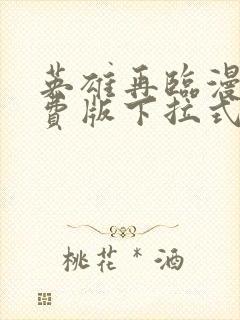 英雄再臨漫
費版下拉式
桃花*酒